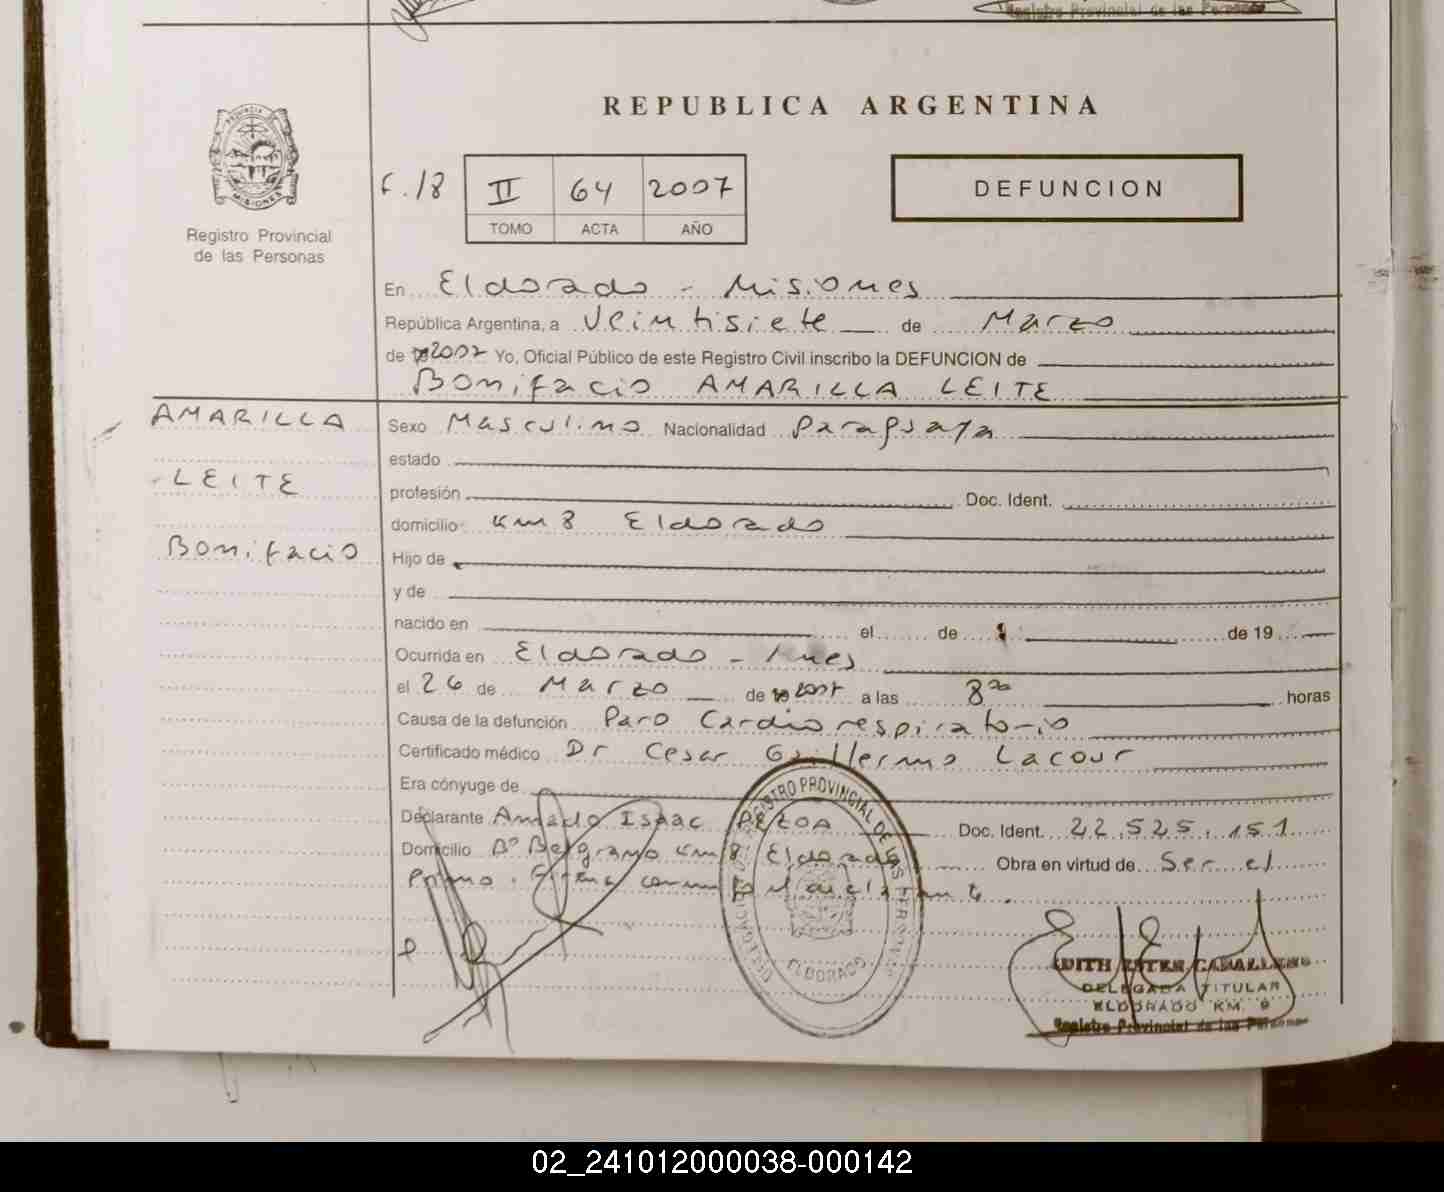 Registro Provincial de las Personas
REPUBLICA ARGENTINA
PROVINCIA DE
MISIONES
Registro Provincial
de las Personas
F. 18
II 64 2007
TOMO ACTA AÑO
DEFUNCION
En Eldorado - Misiones
República Argentina, a Veintisiete de Marzo
de 2007 Yo, Oficial Público de este Registro Civil inscribo la DEFUNCION de
Bonifacio AMARILLA LEITE
AMARILLA
LEITE
Bonifacio
Sexo Masculino Nacionalidad Paraguaya
estado
profesión Doc. Ident.
domicilio Km 8 Eldorado
Hijo de
y de
nacido en el de de 19
Ocurrida en Eldorado - Mnes
el 26 de Marzo de 2007 a las 8 00 horas
Causa de la defunción Paro Cardiorespiratorio
Certificado médico Dr Cesar Guillermo Lacour
Era cónyuge de
Declarante Amado Isaac PEZOA Doc. Ident. 22.525.151
Domicilio Bº Belgrano Km 8 Eldorado Obra en virtud de Ser el
Primo. Firma conmigo el declarante.
REGISTRO PROVINCIAL DE LAS PERSONAS
DELEGACION
ELDORADO
EDITH ESTER CABALLERO
DELEGADA TITULAR
ELDORADO KM. 9
Registro Provincial de las Personas
02_241012000038-000142